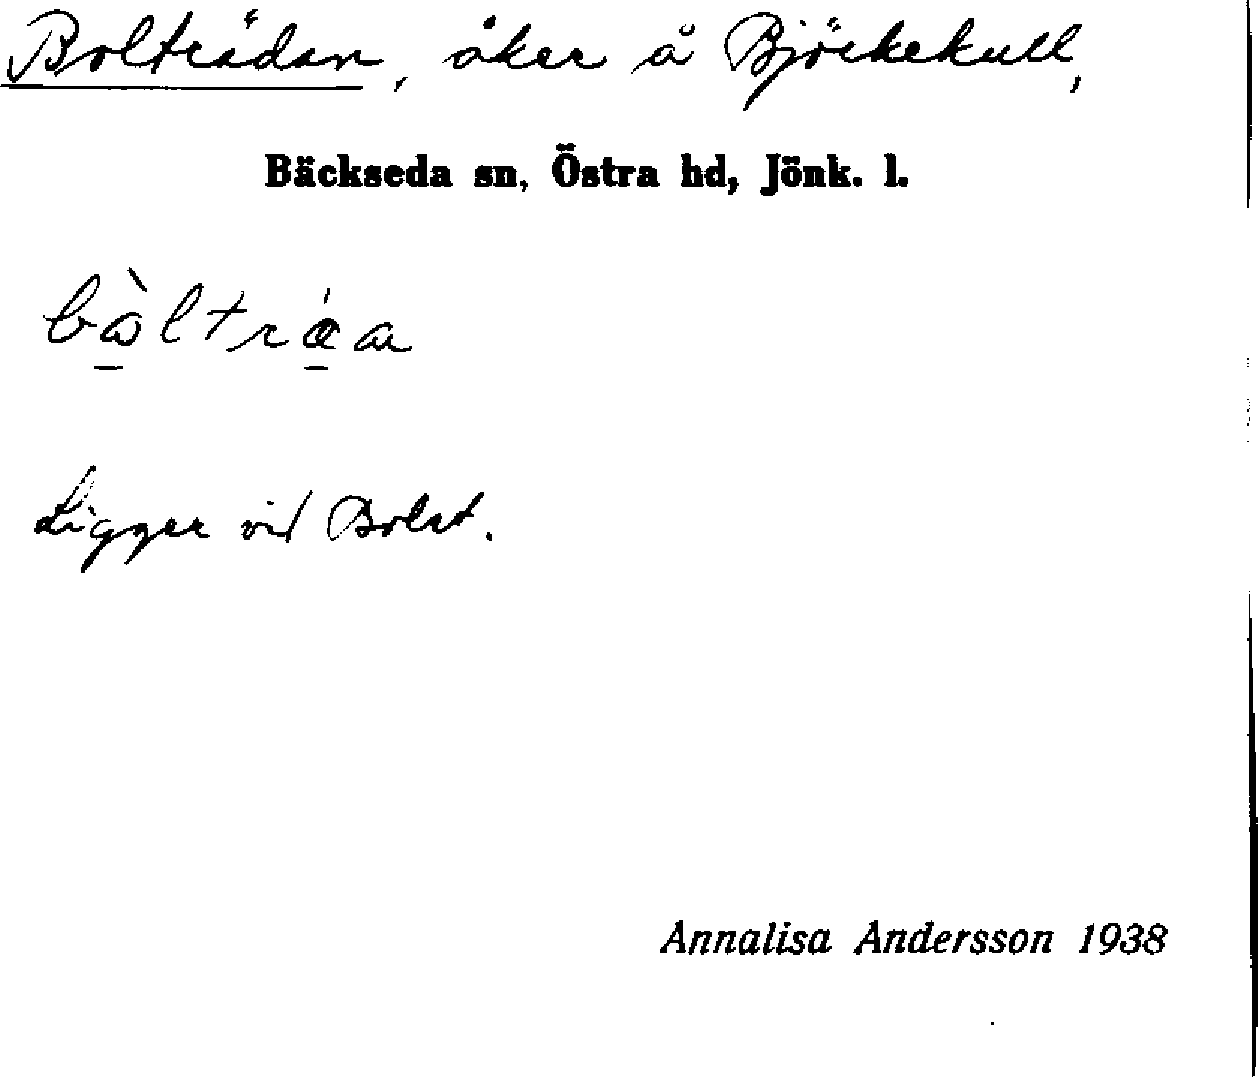 Bolträdan, åker å Björkekull,
Bäckseda sn, Östra hd, Jönk. l.
Ligger vid Bolet.
Annalisa Andersson 1938